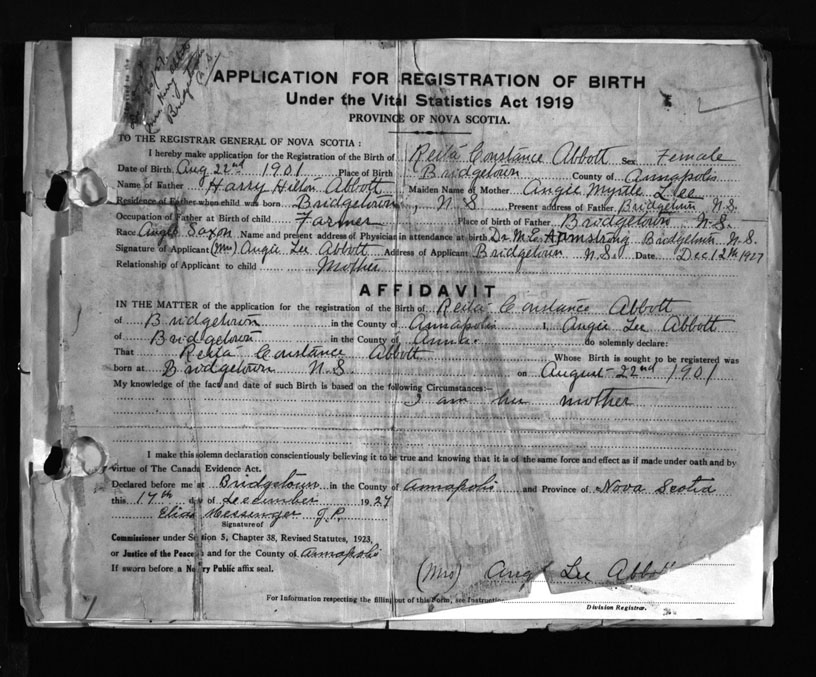 Bridgetown
N.S.
APPLICATION FOR REGISTRATION OF BIRTH
Under the Vital Statistics Act 1919
PROVINCE OF NOVA SCOTIA.
TO THE REGISTRAR GENERAL OF NOVA SCOTIA :
I hereby make application for the Registration of the Birth of Reita Constance Abbott Sex Female
Date of Birth Aug 22nd 1901 Place of Birth Bridgetown County of Annapolis
Name of Father Harry Hilton Abbott Maiden Name of Mother Angie Myrtle Lee
Residence of Father when child was born Bridgetown, N S Present address of Father Bridgetown N.S.
Occupation of Father at Birth of child Farmer Place of birth of Father Bridgetown N.S.
Race Anglo Saxon Name and present address of Physician in attendance at birth Dr. M.E. Armstrong Bridgetown N.S.
Signature of Applicant (Mrs) Angie Lee Abbott Address of Applicant Bridgetown N.S. Date Dec 12th 1927
Relationship of Applicant to child Mother
AFFIDAVIT
IN THE MATTER of the application for the registration of the Birth of Reita Constance Abbott
of Bridgetown in the County of Annapolis I, Angie Lee Abbott
of Bridgetown in the County of Anna. do solemnly declare:
That Reita Constance Abbott Whose Birth is sought to be registered was
born at Bridgetown N.S. on August 22nd 1901
My knowledge of the fact and date of such Birth is based on the following Circumstances:-
I am her mother
I make this solemn declaration conscientiously believing it to be true and knowing that it is of the same force and effect as if made under oath and by
virtue of The Canada Evidence Act.
Declared before me at Bridgetown in the County of Annapolis and Province of Nova Scotia
this 17th day of December 1927
Elias Messenger J.P.
Signature of
Commissioner under Section 5, Chapter 38, Revised Statutes, 1923,
or Justice of the Peace and for the County of Annapolis
If sworn before a Notary Public affix seal.
(Mrs) Angie Lee Abbott
For Information respecting the filling out of this Form, see Instructio
Division Registrar.